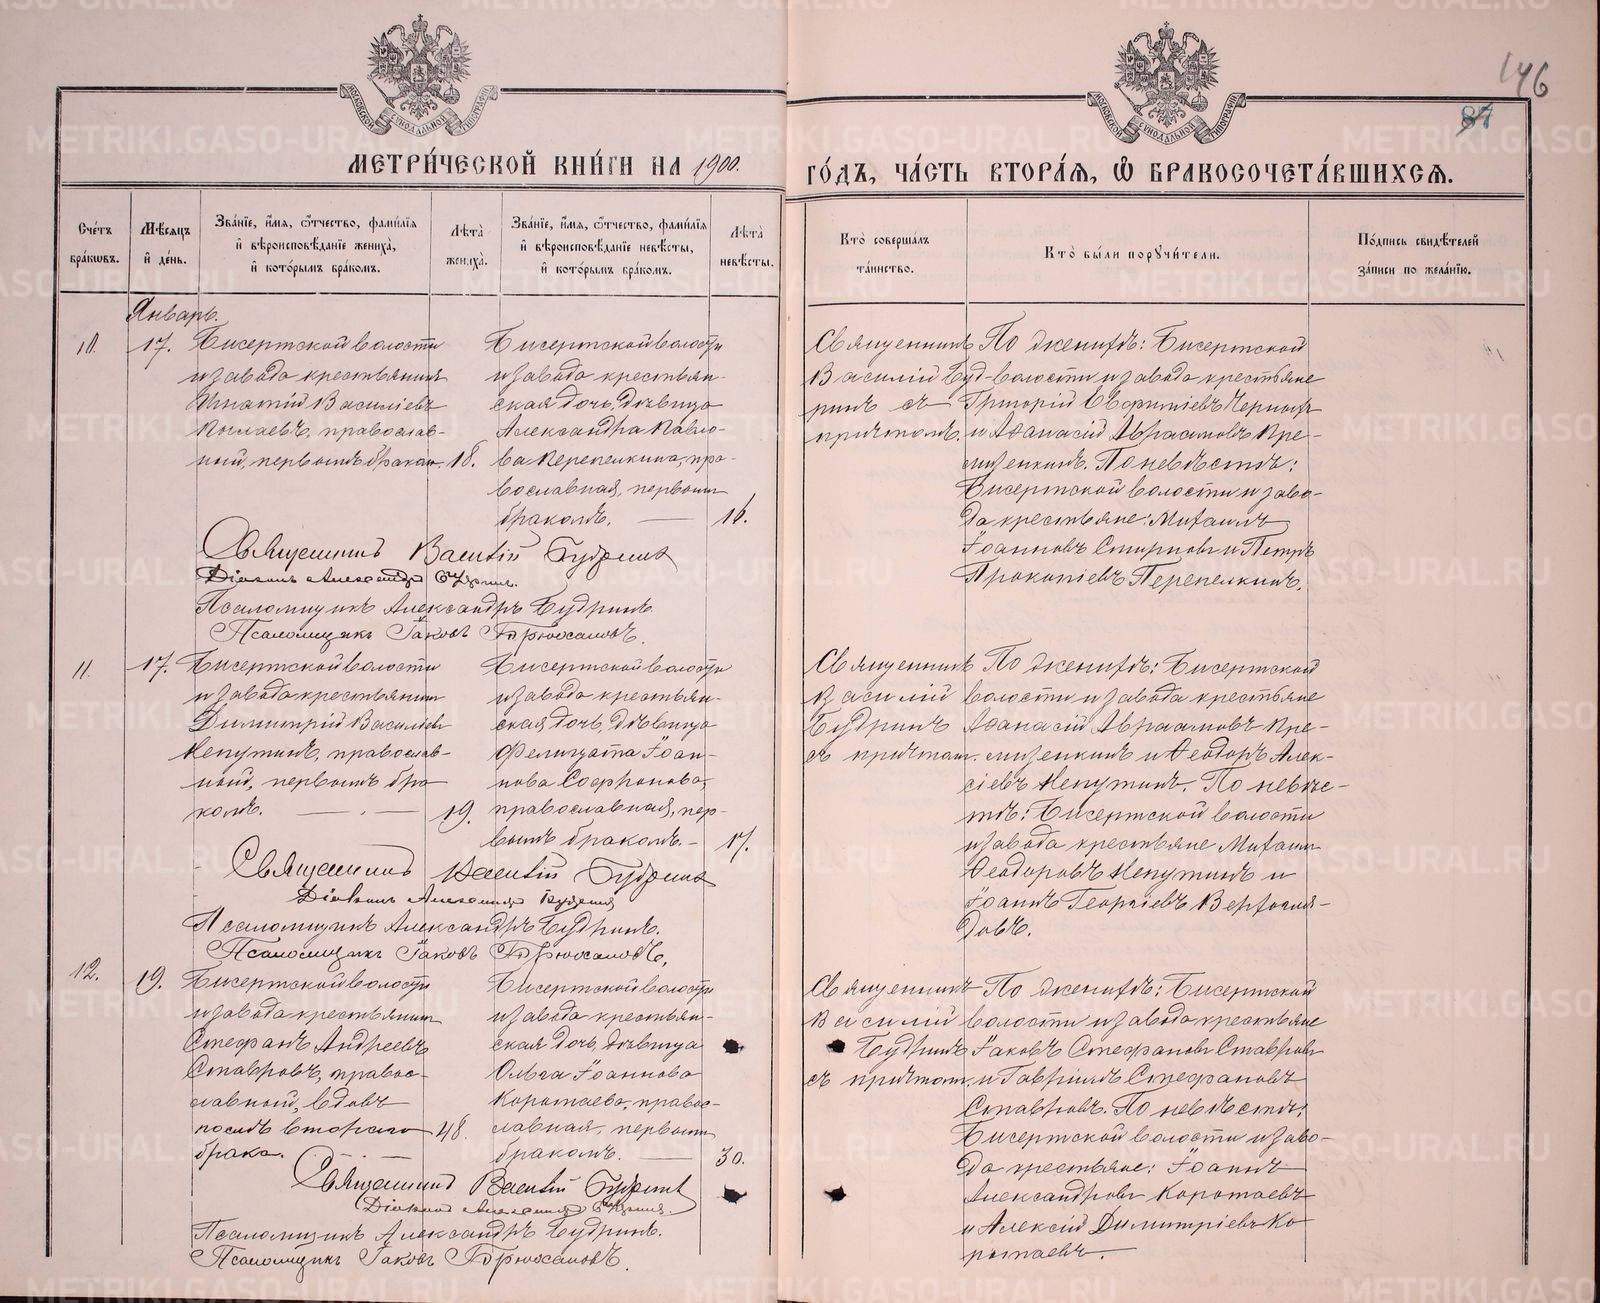 146
87
МЕТРИ́ЧЕСКОЙ КНИ́ГИ НА 1900.
ГО́ДЪ, ЧА́СТЬ ВТОРА́Я, Ѡ БРАКОСОЧЕТА́ВШИХСЯ.
Сче́тъ бра́кωвъ.
Мѣ́сяцъ и҆ де́нь.
Зва́нїе, и҆́мя, ѻ҆́тчество, фами́лїя и҆ вѣроисповѣ́данїе жениха̀, и҆ кото́рымъ бра́комъ.
Лѣ́та̀ жениха̀.
Зва́нїе, и҆́мя, ѻ҆́тчество, фами́лїя и҆ вѣроисповѣ́данїе невѣ́сты, и҆ кото́рымъ бра́комъ.
Лѣ́та̀ невѣ́сты.
Кто̀ соверша́лъ та́инство.
Кто̀ бы́ли порꙋчи́тели.
По́дпись свидѣ́телей за́писи по жела́нїю.
Январь.
10.
17.
Бисертской волости
и завода крестьянинъ
Игнатій Василіевъ
православ-
ный, первымъ бракомъ.
18.
Бисертской волости
и завода крестьян-
ская дочь, дѣвица
Александра Павло-
ва Перепелкина, пра-
вославная, первымъ
бракомъ. —
16.
Священникъ
Василій Буд-
ринъ съ
причтомъ.
По женихѣ: Бисертской
волости и завода крестьяне
Григорій Евфиміевъ
и Аѳанасій Авраамовъ Кре-
По невѣстѣ:
Бисертской волости и заво-
да крестьяне: Михаилъ
Іоанновъ Смирновъ и Петръ
Прокопіевъ Перепелкинъ.
Священникъ Василій Будринъ
Діаконъ Александръ
Псаломщикъ Александръ Будринъ.
Псаломщикъ Іаковъ
11.
17.
Бисертской волости
и завода крестьянинъ
Димитрій Василіевъ
православ-
ный, первымъ бра
комъ. — . —
19.
Бисертской волости
и завода крестьян-
ская дочь, дѣвица
Фелицата Іоан-
нова Софронова,
православная, пер-
вымъ бракомъ. —
17.
Священникъ
Василій
Будринъ
съ причтомъ.
По женихѣ: Бисертской
волости и завода крестьяне
Аѳанасій Авраамовъ Кре-
и Ѳеодоръ Алек-
сіевъ По невѣс-
тѣ: Бисертской волости
и завода крестьяне Михаилъ
Ѳеодоровъ и
Іоаннъ Георгіевъ Верхогля-
довъ.
Священникъ Василій Будринъ
Діаконъ Александръ
Псаломщикъ Александръ Будринъ.
Псаломщикъ Іаковъ
12.
19.
Бисертской волости
и завода крестьянинъ
Стефанъ Андреевъ
Ставровъ, правос-
славный, вдовъ
послѣ втораго
брака. — . —
48.
Бисертской волости
и завода крестьян-
ская дочь, дѣвица
Ольга Іоаннова
Коротаева, правос-
славная, первымъ
бракомъ. —
30.
Священникъ
Василій
Будринъ
съ причтомъ.
По женихѣ: Бисертской
волости и завода крестьяне
Іаковъ Стефановъ Ставровъ
и Гавріилъ Стефановъ
Ставровъ. По невѣстѣ:
Бисертской волости и заво-
да крестьяне: Іоаннъ
Александровъ Коротаевъ
и Алексій Димитріевъ Ко
ротаевъ. —
Священникъ Василій Будринъ
Діаконъ Александръ
Псаломщикъ Александръ Будринъ.
Псаломщикъ Іаковъ
METRIKI.GASO-URAL.RU